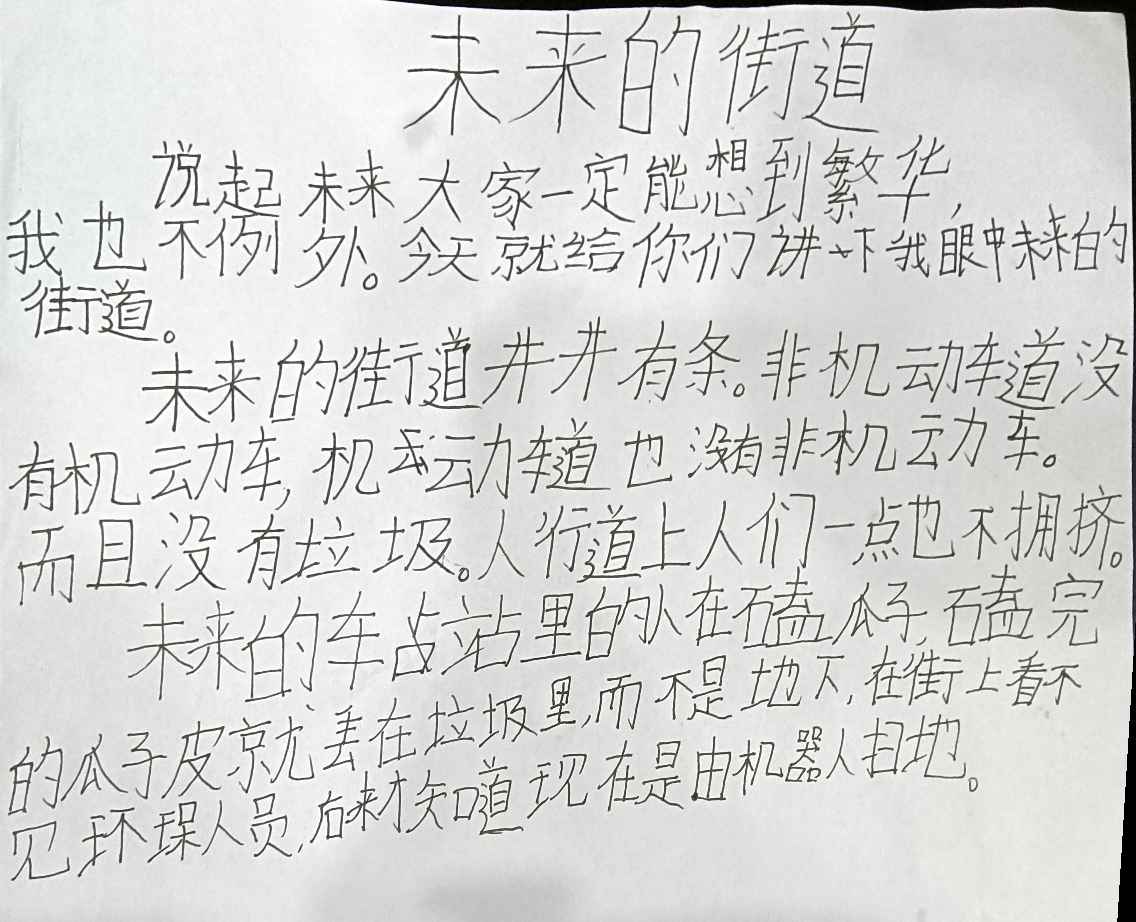 未来的街道
说起未来大家一定能想到繁华,
我也不例外。今天就给你们讲一下我眼中未来的
街道。
未来的街道井井有条。非机动车道没
有机动车,机动车道也没有非机动车。
而且没有垃圾。人行道上人们一点也不拥挤。
未来的车站里的人在磕瓜子,磕完
的瓜子皮就丢在垃圾里,而不是地下,在街上看不
见环保人员,后来才知道现在是由机器人扫地。